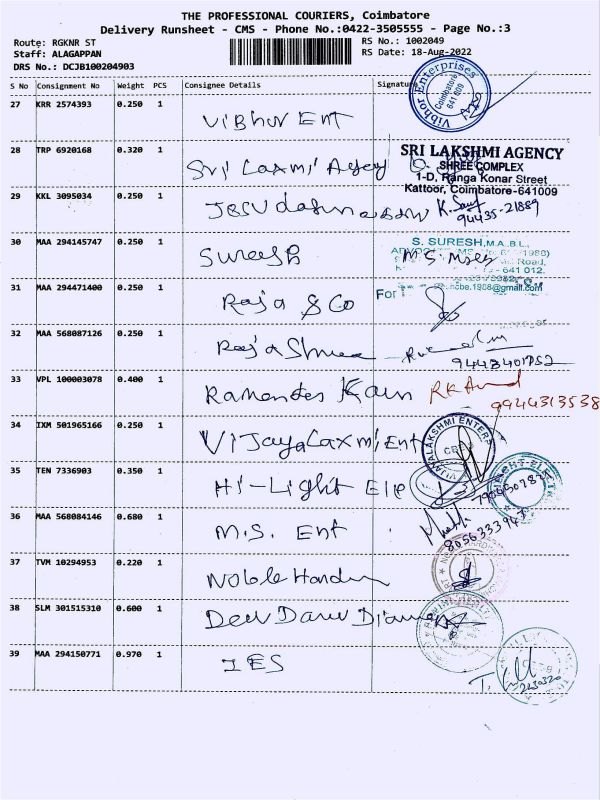 THE PROFESSIONAL COURIERS, Coimbatore
Delivery Runsheet - CMS - Phone No.:0422-3505555 - Page No.:3
Route: RGKNR ST
RS No.: 1002049
Staff: ALAGAPPAN
RS Date: 18-Aug-2022
DRS No.: DCJB100204903
S No Consignment No Weight PCS Consignee Details Signature
27 KRR 2574393 0.250 1 Vibhor Ent
Vibhor Enterprises
Coimbatore
641 009
28 TRP 6920168 0.320 1 Sri Laxmi Agey
SRI LAKSHMI AGENCY
SHREE COMPLEX
1-D, Ranga Konar Street
Kattoor, Coimbatore-641009
29 KKL 3095034 0.250 1
94435-21889
30 MAA 294145747 0.250 1 Suresh
S. SURESH, M.A.,B.L.,
Road,
641 012.
31 MAA 294471400 0.250 1 Raja & Co
For
32 MAA 568087126 0.250 1 Raja Shree
9443401752
33 VPL 100003078 0.400 1
9944313538
34 IXM 501965166 0.250 1 Vijaya Laxmi Ent
VIJAYALAKSHMI ENTERS
35 TEN 7336903 0.350 1 Hi-Light Ele
36 MAA 568084146 0.680 1 M.S. Ent
8056333947
37 TVM 10294953 0.220 1 Noble
38 SLM 301515310 0.600 1
39 MAA 294150771 0.970 1 IES